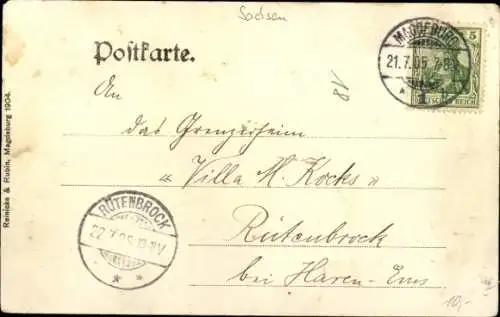 Sachsen
Postkarte.
MAGDEBURG
21.7.05. 7-8V.
1
5
DEUTSCHES REICH
An
das Grenzerheim
« Villa M. Kocks »
Rütenbrock
bei Haren-Ems
RÜTENBROCK
22.7.05
Reinicke & Rubin, Magdeburg 1904.
10,-